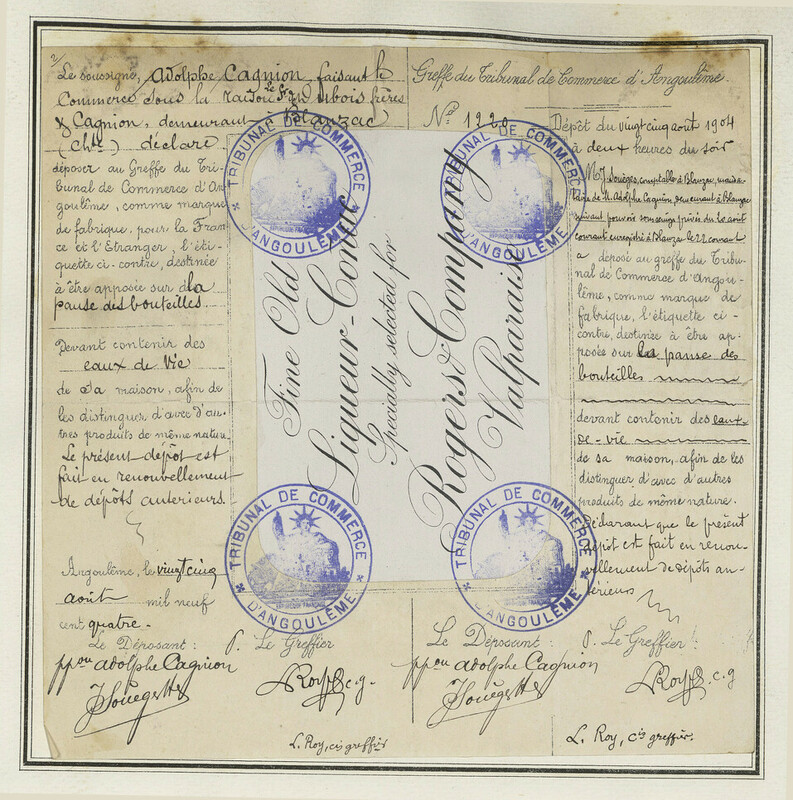 Le soussigné, Adolphe Cagnion, faisant le
Commerce sous la raison Le Fs de Dubois frères
& Cagnion, demeurant à Blanzac
(Chte) déclare
déposer au Greffe du Tri-
bunal de Commerce d'An
goulême, comme marque
de fabrique, pour la Fran
ce et l'Etranger, l'éti-
quette ci-contre, destinée
à être apposée sur la
pause des bouteilles.
Devant contenir des
eaux de Vie
de sa maison, afin de
les distinguer d'avec d'au-
tres produits de même nature.
Le présent dépôt est
fait en renouvellement
de dépôts antérieurs.
Angoulême, le vingt cinq
août mil neuf
cent quatre.
Le Déposant : P. Le Greffier
ppon Adolphe Cagnion
Roy c.g.
L. Roy, cis greffier
Fine Old
Liqueur-Cognac
Specially selected for
Rogers & Company
Valparaiso
TRIBUNAL DE COMMERCE
D'ANGOULÊME
TRIBUNAL DE COMMERCE
D'ANGOULÊME
TRIBUNAL DE COMMERCE
D'ANGOULÊME
TRIBUNAL DE COMMERCE
D'ANGOULÊME
Greffe du Tribunal de Commerce d'Angoulême.
No 1220
Dépôt du vingt cinq août 1904
à deux heures du soir
Mr Souèges, comptable à Blanzac, manda-
taire de M. Adolphe Cagnion demeurant à Blanzac
suivant pouvoir sous seing privé du 20 août
courant enregistré à Blanzac le 22 courant
a déposé au greffe du Tribu-
nal de Commerce d'Angou-
lême, comme marque de
fabrique, l'étiquette ci-
contre, destinée à être ap-
posée sur la pause des
bouteilles
devant contenir des eaux-
de-vie
de sa maison, afin de les
distinguer d'avec d'autres
produits de même nature.
Déclarant que le présent
dépôt est fait en renou-
vellement de dépôts an-
térieurs
Le Déposant : P. Le Greffier :
ppon Adolphe Cagnion
Roy c.g
L. Roy, cis greffier.